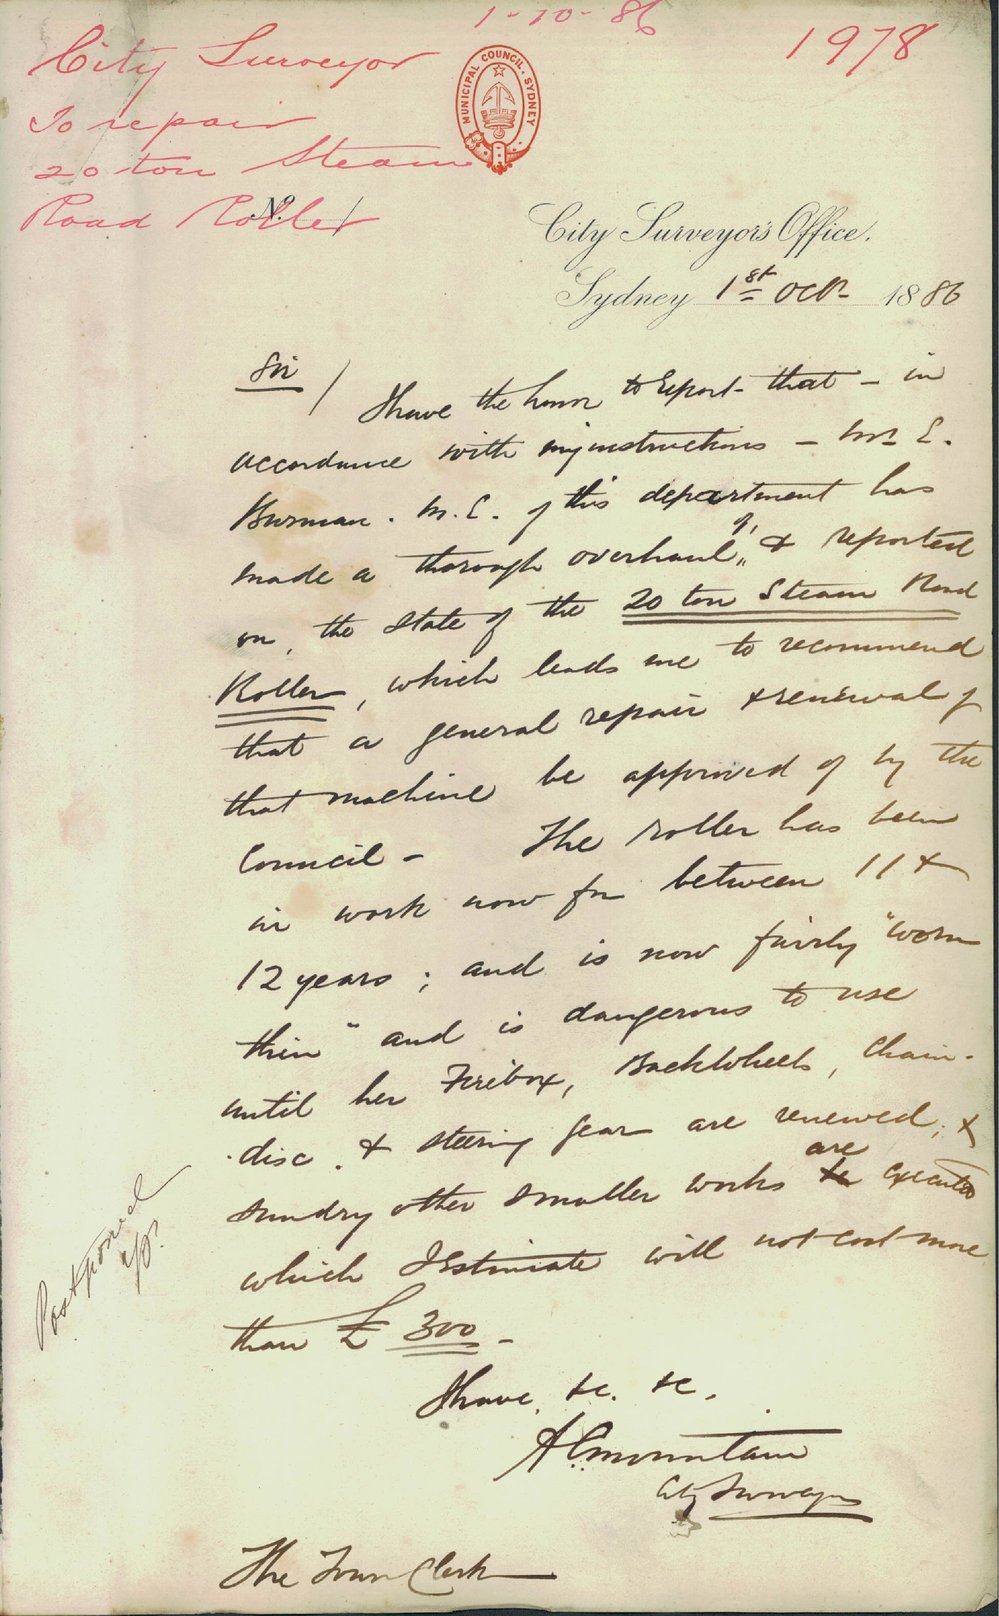 1-10-86
1978
City Surveyor
To repair
20 ton Steam
Road Roller
MUNICIPAL COUNCIL. SYDNEY
No. /
City Surveyor's Office.
Sydney 1st Octr 1886
Sir /
I have the honor to Report that – in
accordance with my instructions – Mr E.
Burman. M.E. of this department has
made a thorough overhaul of, & reported
on, the state of the 20 ton Steam Road
Roller, which leads me to recommend
that a general repair & renewal of
that machine be approved of by the
Council – The roller has been
in work now for between 11 &
12 years; and is now fairly "worn
thin" and is dangerous to use
until her Firebox, Backwheels, Chain-
disc. & steering gear are renewed; &
sundry other smaller works are executed
which I Estimate will not cost more
than £300 –
I have, &c. &c.
A C Mountain
City Surveyor
The Town Clerk
Postponed